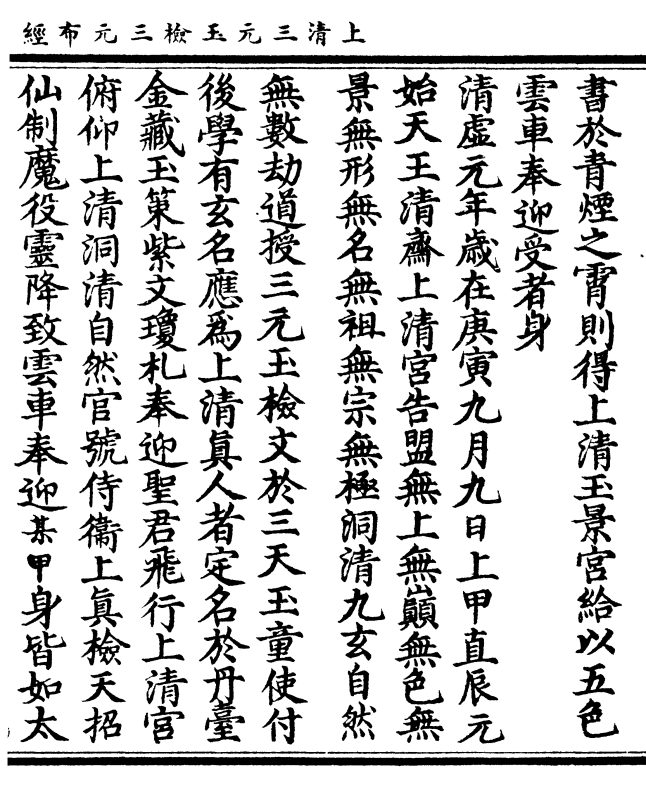 上清三元玉檢三元布經
書於青煙之霄則得上清玉景宮給以五色
雲車奉迎受者身
清虛元年歲在庚寅九月九日上甲直辰元
始天王清齋上清宮告盟無上無巔無色無
景無形無名無祖無宗無極洞清九玄自然
無數劫道授三元玉檢文於三天玉童使付
後學有玄名應爲上清眞人者定名於丹臺
金藏玉策紫文瓊札奉迎聖君飛行上清宮
俯仰上清洞清自然官號侍衞上眞檢天招
仙制魔役靈降致雲車奉迎某甲身皆如太